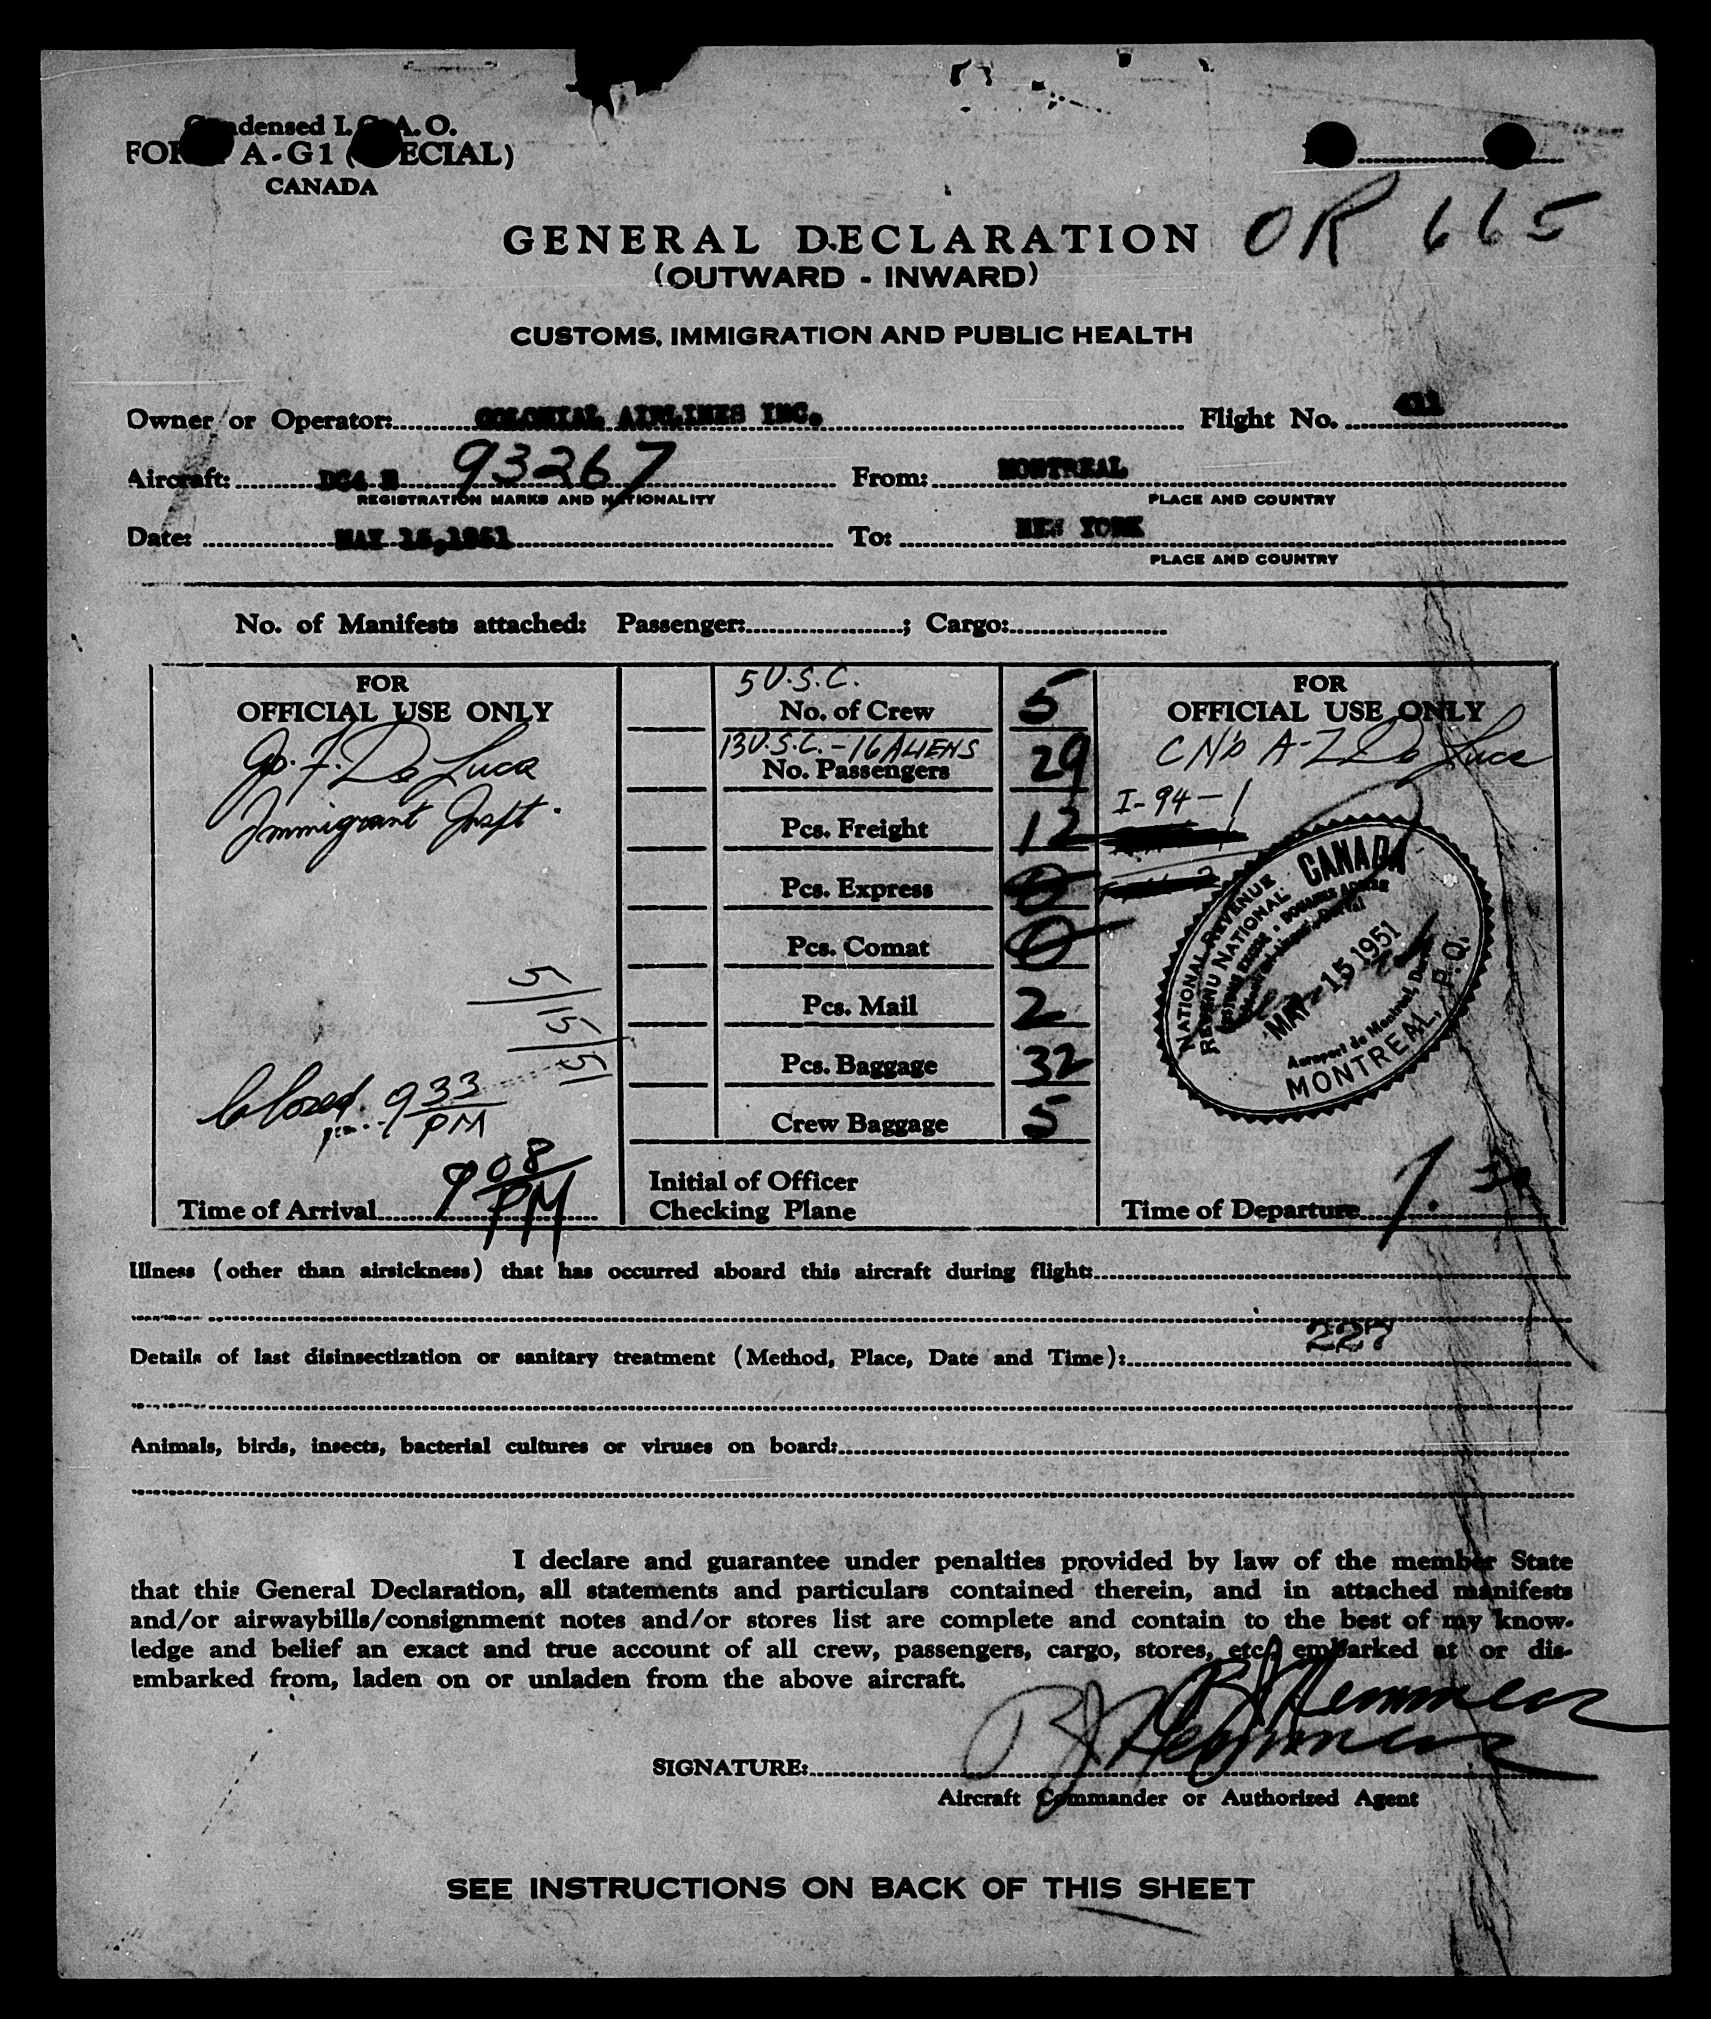 Condensed I.C.A.O.
FORM A-G1 (SPECIAL)
CANADA
OR 665
GENERAL DECLARATION
(OUTWARD - INWARD)
CUSTOMS, IMMIGRATION AND PUBLIC HEALTH
Owner or Operator: COLONIAL AIRLINES INC. Flight No. 411
Aircraft: DC4 N 93267 From: MONTREAL
REGISTRATION MARKS AND NATIONALITY PLACE AND COUNTRY
Date: MAY 15, 1951 To: NEW YORK
PLACE AND COUNTRY
No. of Manifests attached: Passenger: ; Cargo:
FOR
OFFICIAL USE ONLY
Jo. F. De Luca
Immigrant Inspt.
5/15/51
Closed 9 33 PM
9 08 PM
Time of Arrival
5 U.S.C.
No. of Crew 5
13 U.S.C. - 16 ALIENS
No. Passengers 29
Pcs. Freight 12
Pcs. Express 0
Pcs. Comat 0
Pcs. Mail 2
Pcs. Baggage 32
Crew Baggage 5
Initial of Officer
Checking Plane
FOR
OFFICIAL USE ONLY
C N'o A-Z De Luca
I-94-1
CANADA
NATIONAL REVENUE
REVENU NATIONAL
MAY 15 1951
Aeroport de Montreal, Dorval
MONTREAL, P.Q.
Time of Departure 7.30
Illness (other than airsickness) that has occurred aboard this aircraft during flight:
227
Details of last disinsectization or sanitary treatment (Method, Place, Date and Time):
Animals, birds, insects, bacterial cultures or viruses on board:
I declare and guarantee under penalties provided by law of the member State
that this General Declaration, all statements and particulars contained therein, and in attached manifests
and/or airwaybills/consignment notes and/or stores list are complete and contain to the best of my know-
ledge and belief an exact and true account of all crew, passengers, cargo, stores, etc., embarked at or dis-
embarked from, laden on or unladen from the above aircraft.
SIGNATURE:
Aircraft Commander or Authorized Agent
SEE INSTRUCTIONS ON BACK OF THIS SHEET